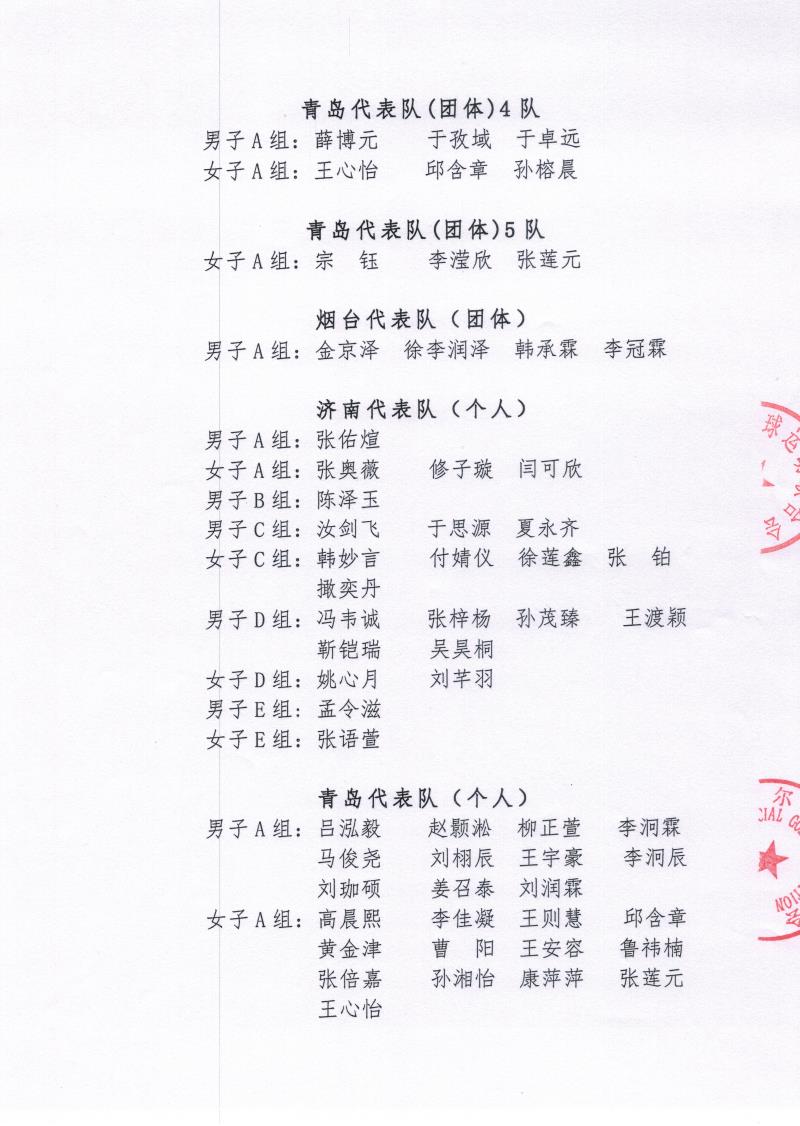 青岛代表队(团体)4队
男子A组：薛博元 于孜域 于卓远
女子A组：王心怡 邱含章 孙榕晨
青岛代表队(团体)5队
女子A组：宗 钰 李滢欣 张莲元
烟台代表队（团体）
男子A组：金京泽 徐李润泽 韩承霖 李冠霖
济南代表队（个人）
男子A组：张佑煊
女子A组：张奥薇 修子璇 闫可欣
男子B组：陈泽玉
男子C组：汝剑飞 于思源 夏永齐
女子C组：韩妙言 付婧仪 徐莲鑫 张 铂
撖奕丹
男子D组：冯韦诚 张梓杨 孙茂臻 王渡颖
靳铠瑞 吴昊桐
女子D组：姚心月 刘芊羽
男子E组：孟令滋
女子E组：张语萱
青岛代表队（个人）
男子A组：吕泓毅 赵颢淞 柳正萱 李泂霖
马俊尧 刘栩辰 王宇豪 李泂辰
刘珈硕 姜召泰 刘润霖
女子A组：高晨熙 李佳凝 王则慧 邱含章
黄金津 曹 阳 王安容 鲁祎楠
张倍嘉 孙湘怡 康萍萍 张莲元
王心怡
球运
会
尔
CIAL GO
TION
会